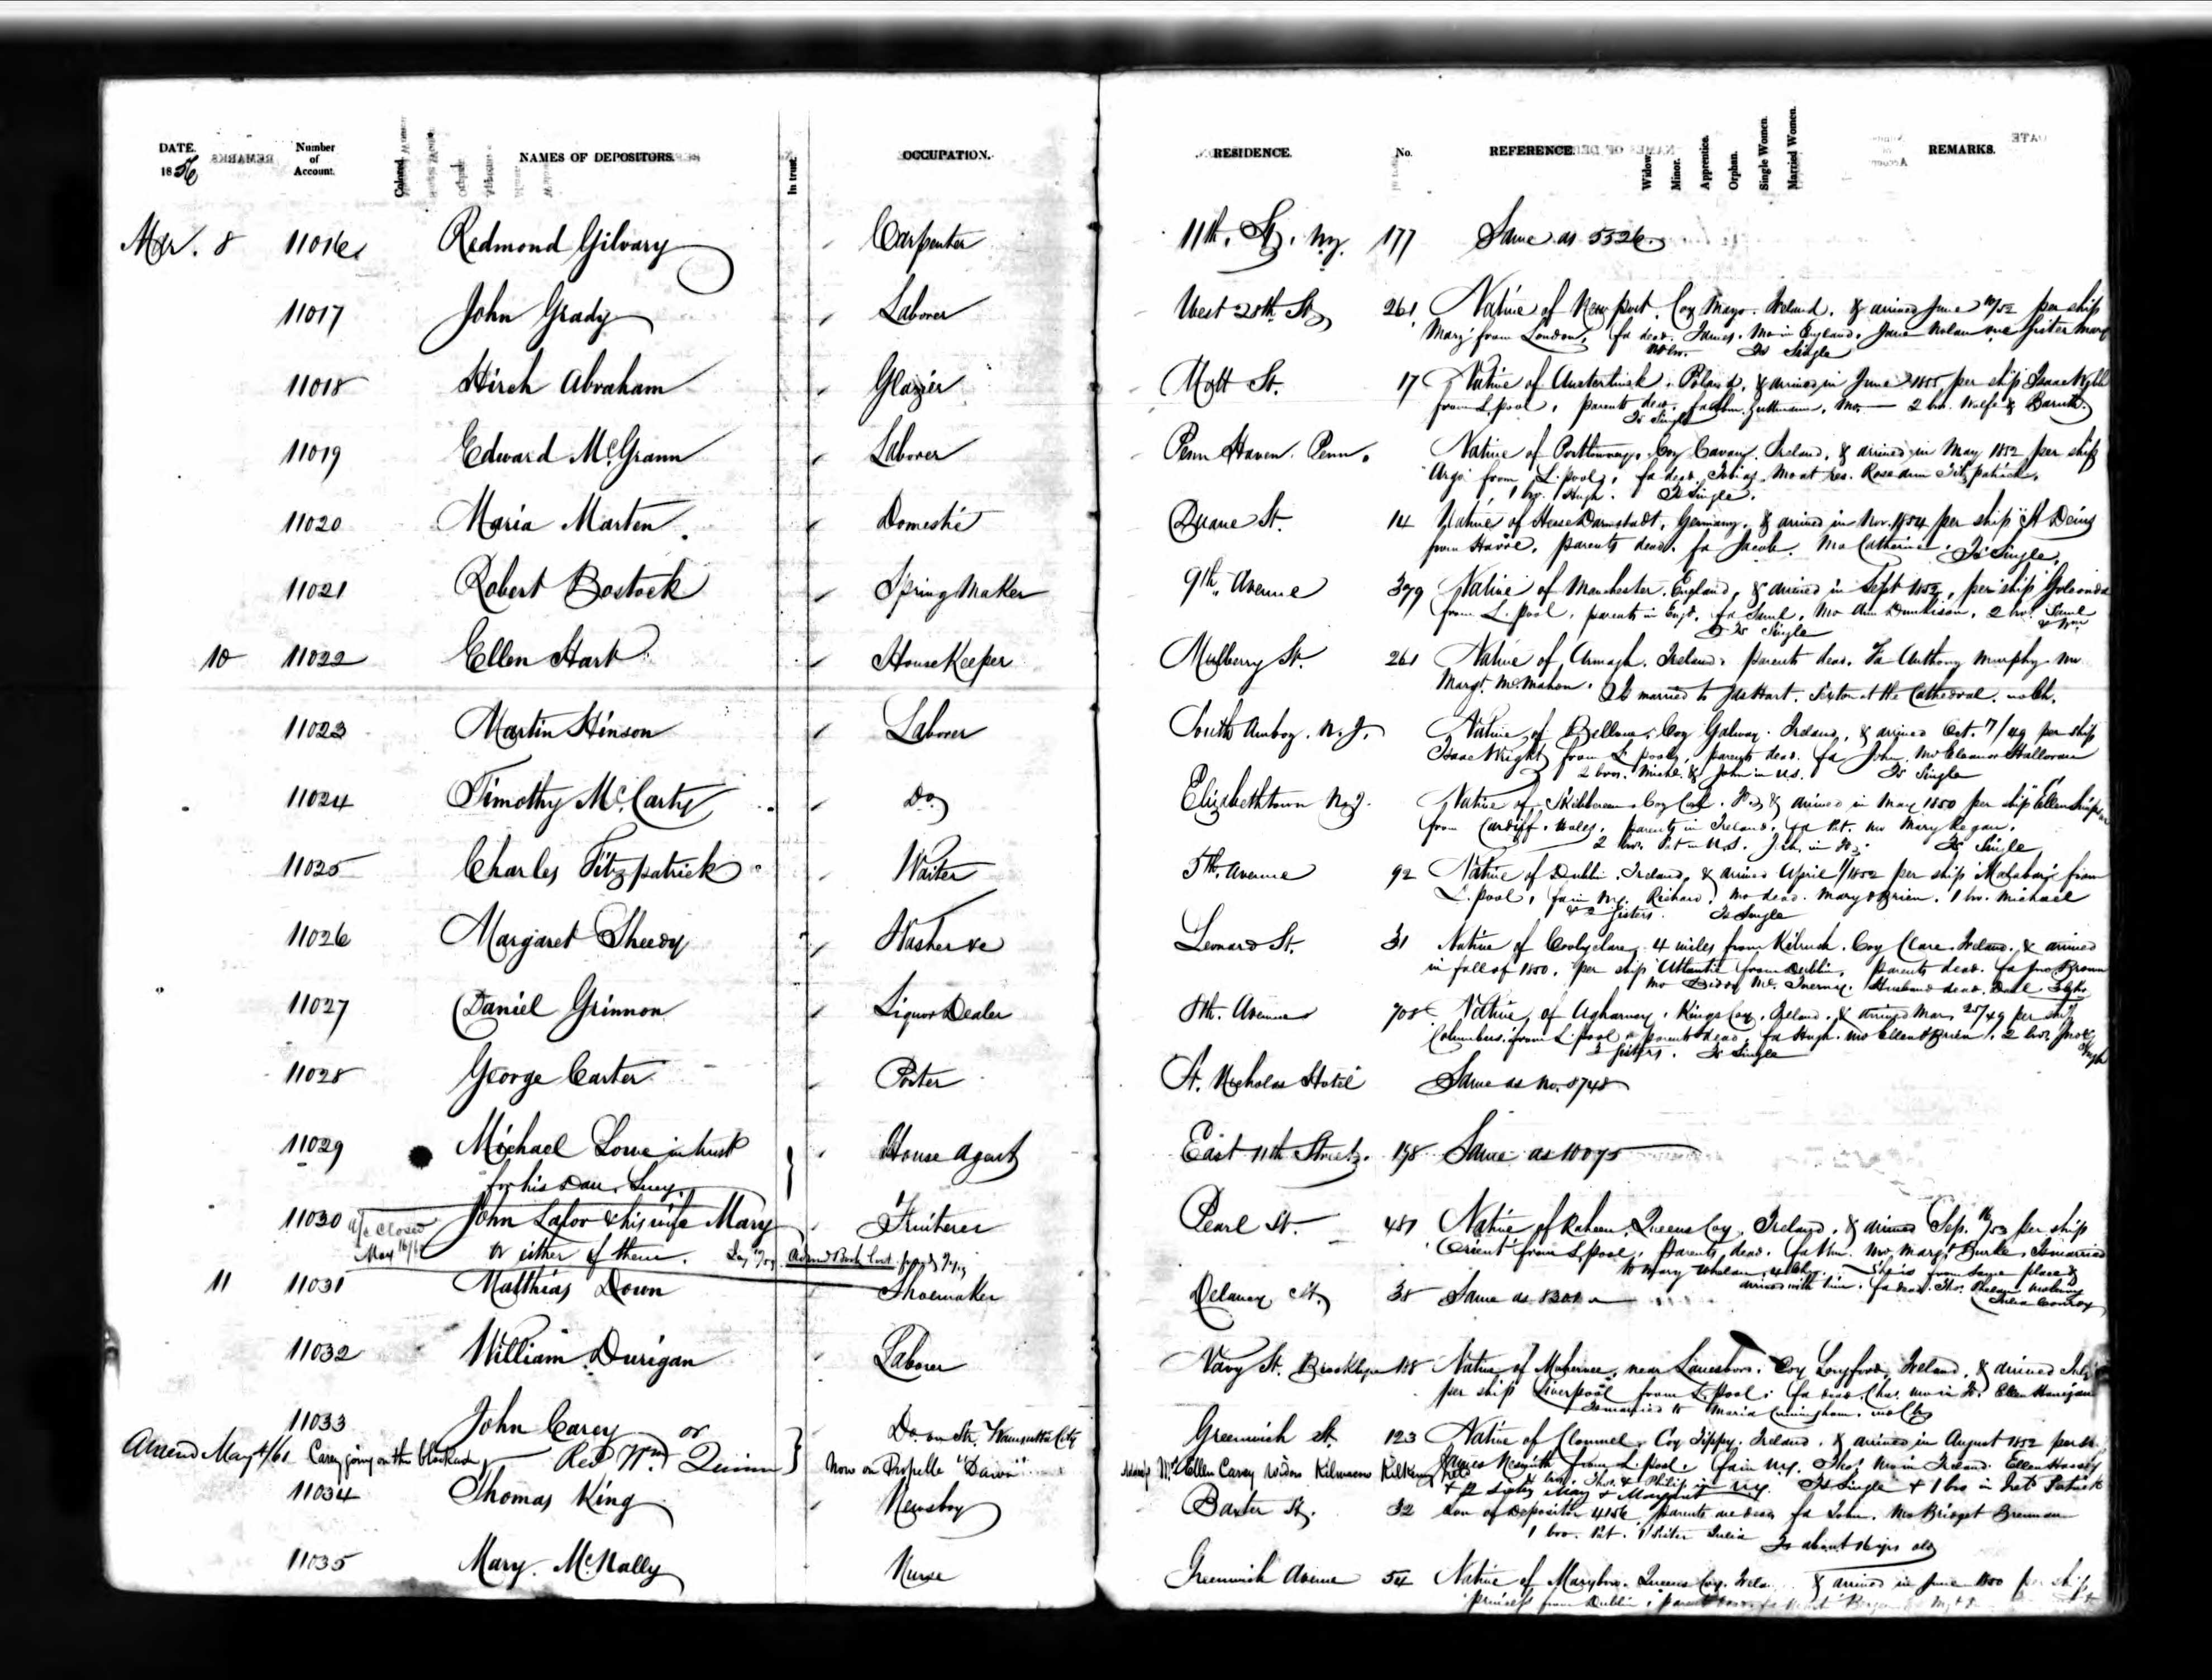 DATE. Number of Account. Colored. NAMES OF DEPOSITORS. In trust. OCCUPATION. RESIDENCE. No. REFERENCE. Widow. Minor. Apprentice. Orphan. Single Women. Married Women. REMARKS.
1856
Mar. 8 11016 Redmond Gilvary Carpenter 11th. St. N.Y. 177 Same as 5526
11017 John Grady Laborer West 28th St 261 Native of Newport, Coy Mayo. Ireland. & arrived June 10/52 per ship
Mary from London, fa dead. James. Mo in England. Jane Nolan one Sister Mary
no bro. Is Single
11018 Hirch Abraham Glazier Mott St. 17 Native of Poland, & arrived in June 1855, per ship Isaac
from L.pool, parents dead. fa Mo. — 2 bro. Wolfe & Baruth
Is Single
11019 Edward McGrann Laborer Penn Haven. Penn. Native of Coy Cavan, Ireland, & arrived in May 1852 per ship
Argo from L.pool, fa dead Tobias. Mo at res. Rose ann Fitzpatrick.
1 bro. Hugh. Is Single.
11020 Maria Marten Domestic Duane St. 14 Native of Hesse Darmstadt, Germany, & arrived in Nov. 1854 per ship St Denis
from Havre. parents dead. fa Jacob. Mo Catherine. Is Single.
11021 Robert Bostock Spring Maker 9th Avenue 379 Native of Manchester. England, & arrived in Sept 1852, per ship Golconda
from L.pool, parents in Engd. fa Saml. Mo Ann 2 bro. Saml & Wm
Is Single
10 11022 Ellen Hart HouseKeeper Mulberry St. 261 Native of Armagh. Ireland. parents dead. Fa Anthony Murphy Mo
Margt. McMahon. Is married to Jas Hart. Sexton at the Cathedral. no Ch.
11023 Martin Hinson Laborer South Amboy. N.J. Native of Coy Galway. Ireland, & arrived Oct. 7/49 per ship
Isaac Wright from L.pool, parents dead. fa John, Mo Eleanor Halloran
2 bros. Michl. & John in U.S. Is Single
11024 Timothy McCarty Do Elizabethtown N.J. Native of Skibbereen Coy Cork. & arrived in May 1850 per ship Ellen
from Cardiff. Wales. parents in Ireland. fa Pat. Mo Mary Regan.
2 bro. Pat in U.S. Is Single
11025 Charles Fitzpatrick Waiter 5th. Avenue 92 Native of Dublin. Ireland, & arrived April 1852 per ship from
L.pool, fa in N.Y. Richard. Mo dead. Mary OBrien. 1 bro. Michael
& 2 Sisters. Is Single
11026 Margaret Sheedy Washer &c Leonard St. 31 Native of 4 miles from Kilrush. Coy Clare. Ireland. & arrived
in fall of 1850. per ship Atlantic from Dublin. parents dead. fa Brown
Mo Biddy Husband dead.
11027 Daniel Grinnon Liquor Dealer 8th. Avenue 708 Native of Kings Coy, Ireland. & arrived Mar. 25/49 per ship
Columbus from L.pool parents dead. fa Hugh. Mo Ellen OBrien. 2 bro. &
Hugh
2 Sisters. Is Single
11028 George Carter Porter St. Nicholas Hotel Same as No. 8748
11029 Michael Lowe in trust House Agent East 11th Street. 198 Same as 10075
for his Dau. Lucy.
11030 John Lalor & his wife Mary Fruiterer Pearl St. 481 Native of Raheen, Queens Coy, Ireland, & arrived Sep. 16/53 per ship
a/c Closed May 16/ or either of them. Book Lost
Orient from L.pool, parents dead. fa Wm. Mo Margt Burke. Is married
to Mary Whelan, She is from same place &
arrived with him. fa dead. Thos. Mo living
Julia Conroy
11 11031 Matthias Down Shoemaker Delancy St. 38 Same as 8301
11032 William Durigan Laborer Navy St. Brooklyn 188 Native of near Lanesboro. Coy Longford, Ireland, & arrived
per ship Liverpool from L.pool. fa dead Chas. Mo in Ir. Ellen
Is married to Maria Cunningham. no Ch
11033 John Carey or Do. on Str. Wamsutta City Greenwich St. 123 Native of Clonmel. Coy Tippy. Ireland. & arrived in August 1852 per
Amend May 4/61 Carey going on the blockade Rev Wm Quinn Now on Propelle "Dawn" Mrs Ellen Carey Widow
James Nesmith from L.pool. fa in N.Y. Thos. Mo in Ireland. Ellen
bro. Thos. & Philip in N.Y. Is Single & 1 bro in Irel Patrick
& 2 Sisters Mary & Margaret N.Y.
11034 Thomas King Newsboy Baxter St. 32 Son of Depositor 4156. parents are dead fa John. Mo Bridget Brennan
1 bro. Pat. 1 Sister Julia Is about 16 yrs old
11035 Mary. McNally Nurse Greenwich Avenue 54 Native of Marybro. Queens Coy. & arrived in June 1850 per ship
princess from Dublin.